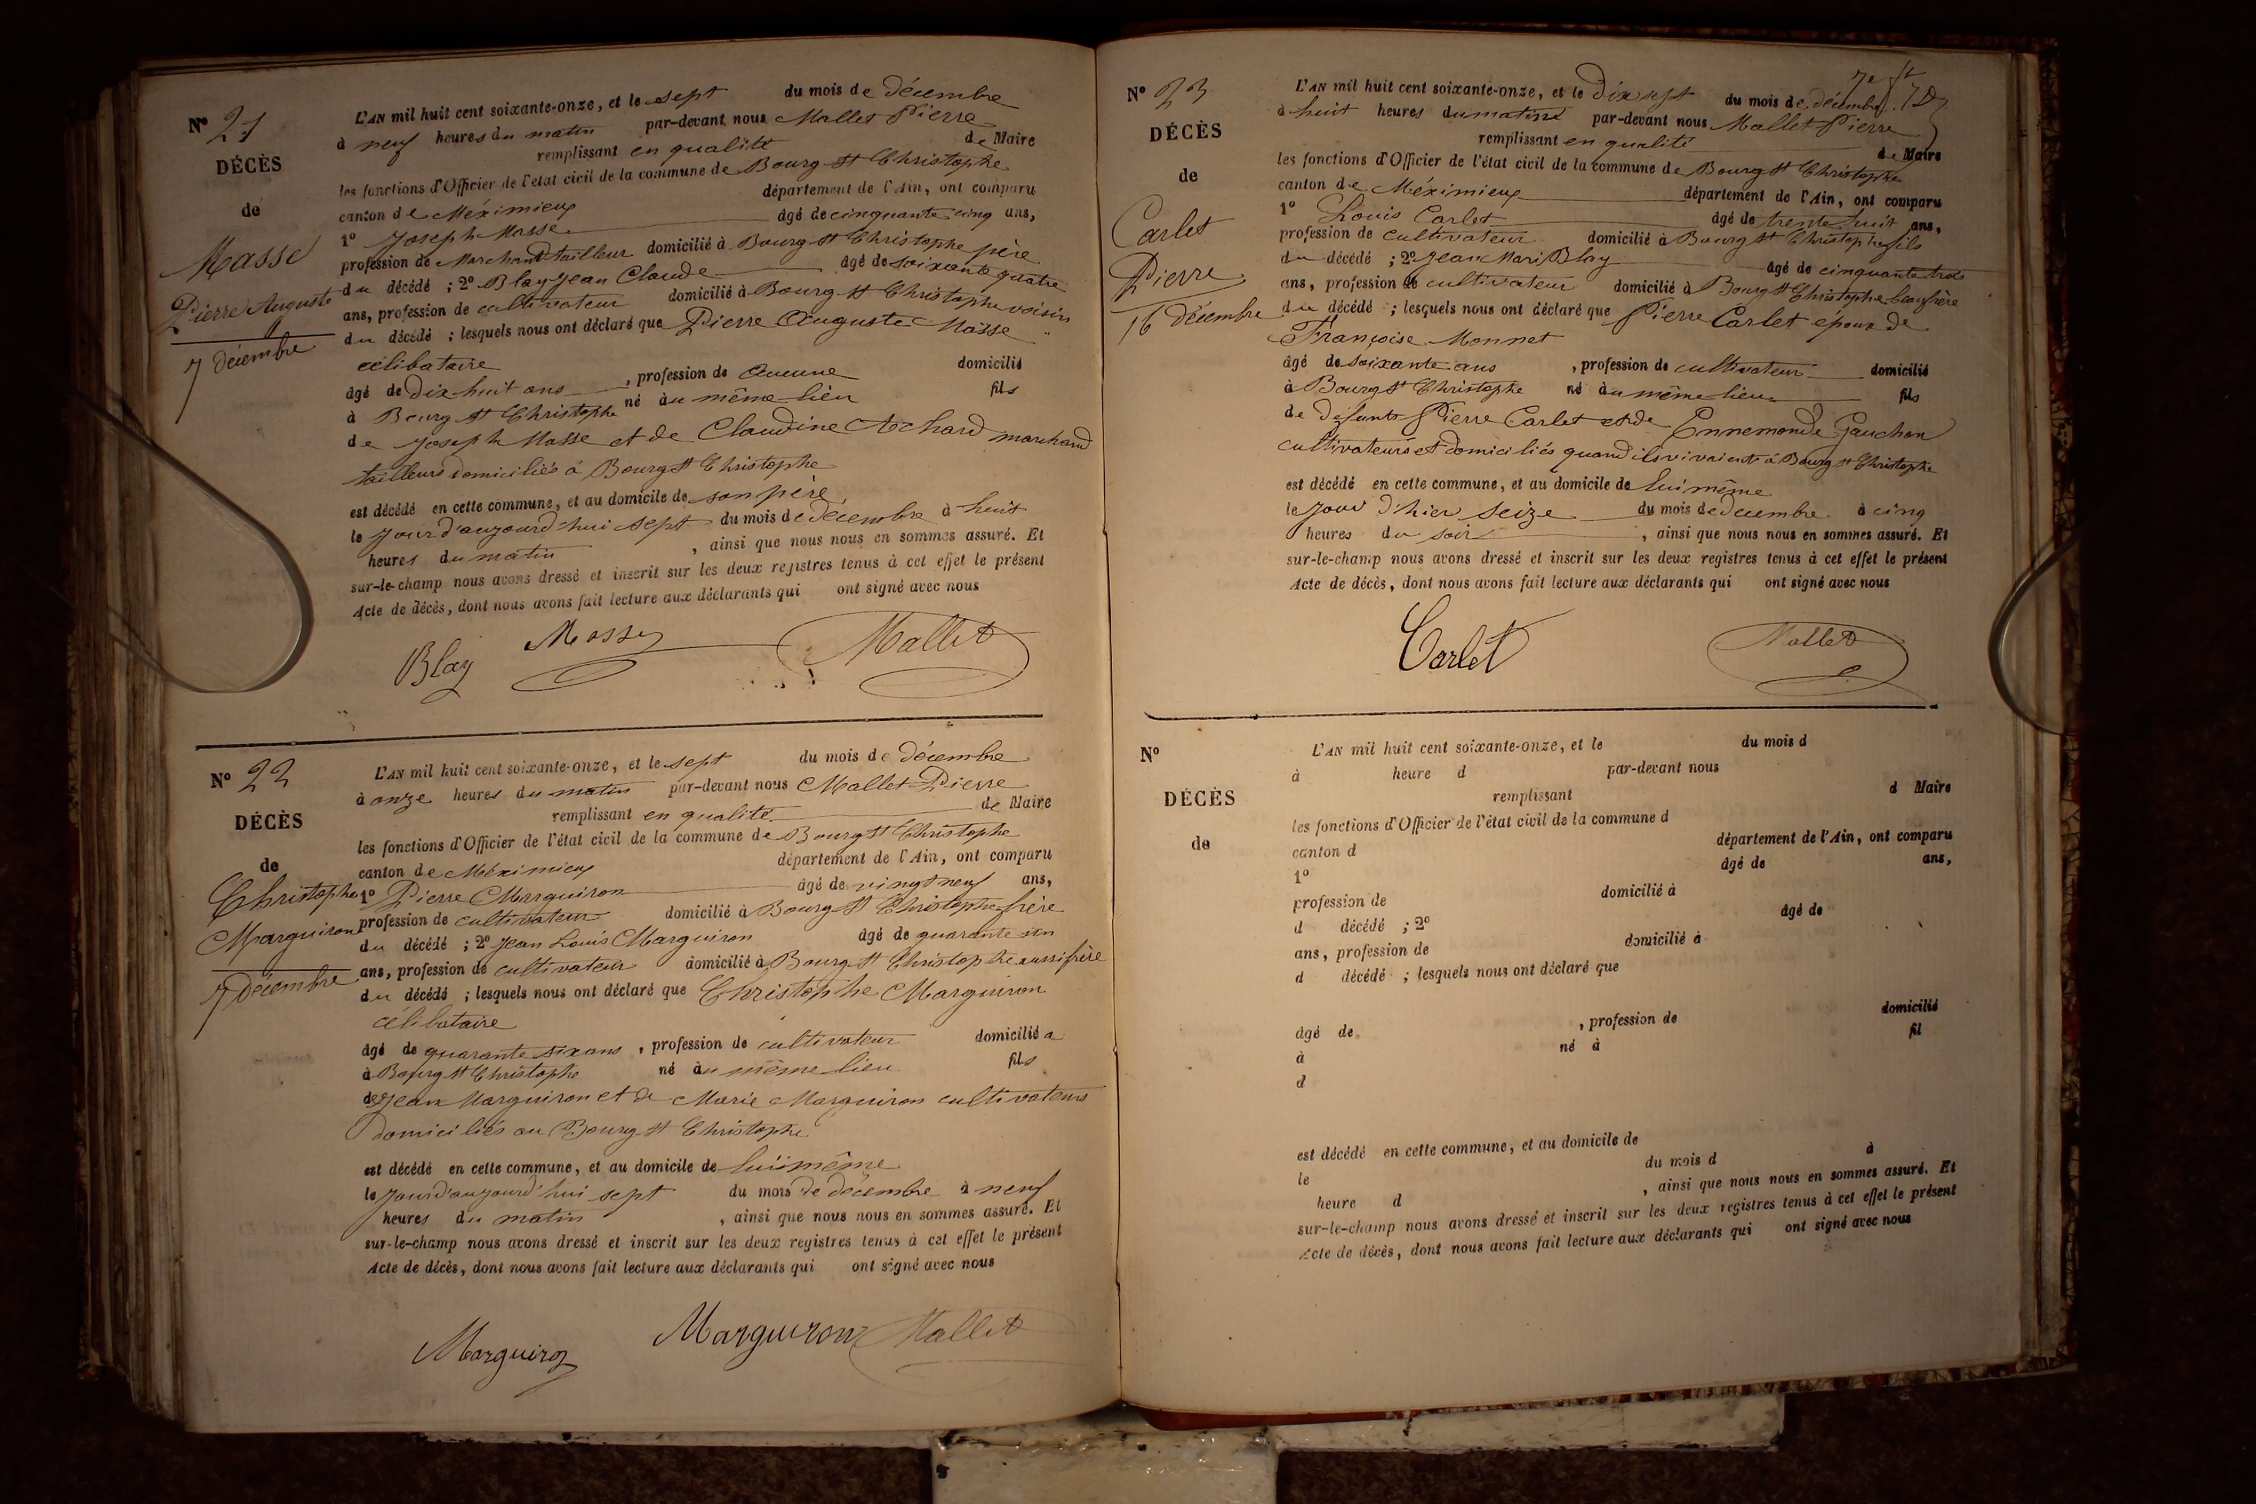 N° 21
DÉCÈS
de
Masse
Pierre Auguste
7 décembre
L'AN mil huit cent soixante-onze, et le sept du mois de décembre
à neuf heures du matin par-devant nous Mallet Pierre
remplissant en qualité de Maire
les fonctions d'Officier de l'état civil de la commune de Bourg St Christophe
canton de Méximieux département de l'Ain, ont comparu
1° Joseph Masse âgé de cinquante cinq ans,
profession de Marchand tailleur domicilié à Bourg St Christophe père
du décédé ; 2° Blay Jean Claude âgé de soixante quatre
ans, profession de cultivateur domicilié à Bourg St Christophe voisin
du décédé ; lesquels nous ont déclaré que Pierre Auguste Masse
célibataire
âgé de Dix-huit ans, profession de Aucune domicilié
à Bourg St Christophe né au même lieu fils
de Joseph Masse et de Claudine Achard marchand
tailleurs domiciliés à Bourg St Christophe
est décédé en cette commune, et au domicile de son père,
le jour d'aujourd'hui sept du mois de décembre à huit
heures du matin, ainsi que nous nous en sommes assuré. Et
sur-le-champ nous avons dressé et inscrit sur les deux registres tenus à cet effet le présent
Acte de décès, dont nous avons fait lecture aux déclarants qui ont signé avec nous
Blay Masse Mallet
N° 22
DÉCÈS
de
Christophe
Marguiron
7 décembre
L'AN mil huit cent soixante-onze, et le sept du mois de décembre
à onze heures du matin par-devant nous Mallet Pierre
remplissant en qualité de Maire
les fonctions d'Officier de l'état civil de la commune de Bourg St Christophe
canton de Méximieux département de l'Ain, ont comparu
1° Pierre Marguiron âgé de vingt neuf ans,
profession de cultivateur domicilié à Bourg St Christophe frère
du décédé ; 2° Jean Louis Marguiron âgé de quarante
ans, profession de cultivateur domicilié à Bourg St Christophe aussi frère
du décédé ; lesquels nous ont déclaré que Christophe Marguiron
célibataire
âgé de quarante six ans, profession de cultivateur domicilié a
à Bourg St Christophe né au même lieu fils
de Jean Marguiron et de Marie Marguiron cultivateurs
domiciliés au Bourg St Christophe
est décédé en cette commune, et au domicile de lui même
le jour d'aujourd'hui sept du mois de décembre à neuf
heures du matin, ainsi que nous nous en sommes assuré. Et
sur-le-champ nous avons dressé et inscrit sur les deux registres tenus à cet effet le présent
Acte de décès, dont nous avons fait lecture aux déclarants qui ont signé avec nous
Marguiron Marguiron Mallet
N° 23
DÉCÈS
de
Carlet
Pierre
16 décembre
L'AN mil huit cent soixante-onze, et le dix sept du mois de décembre
à huit heures du matin par-devant nous Mallet Pierre
remplissant en qualité de Maire
les fonctions d'Officier de l'état civil de la commune de Bourg St Christophe
canton de Méximieux département de l'Ain, ont comparu
1° Louis Carlet âgé de trente huit ans,
profession de cultivateur domicilié à Bourg St Christophe fils
du décédé ; 2° Jean Mari Blay âgé de cinquante trois
ans, profession de cultivateur domicilié à Bourg St Christophe beaufrère
du décédé ; lesquels nous ont déclaré que Pierre Carlet époux de
Françoise Monnet
âgé de soixante ans, profession de cultivateur domicilié
à Bourg St Christophe né au même lieu fils
de défunts Pierre Carlet et de Ennemonde Gauchon
cultivateurs et domiciliés quand ils vivaient à Bourg St Christophe
est décédé en cette commune, et au domicile de lui même
le jour d'hier seize du mois de décembre à cinq
heures du soir, ainsi que nous nous en sommes assuré. Et
sur-le-champ nous avons dressé et inscrit sur les deux registres tenus à cet effet le présent
Acte de décès, dont nous avons fait lecture aux déclarants qui ont signé avec nous
Carlet Mallet
N°
DÉCÈS
de
L'AN mil huit cent soixante-onze, et le du mois d
à heure d par-devant nous
remplissant d Maire
les fonctions d'Officier de l'état civil de la commune d
canton d département de l'Ain, ont comparu
1° âgé de ans,
profession de domicilié à
d décédé ; 2° âgé de
ans, profession de domicilié à
d décédé ; lesquels nous ont déclaré que
âgé de, profession de domicilié
à né à fil
d
est décédé en cette commune, et au domicile de
le du mois d à
heure d, ainsi que nous nous en sommes assuré. Et
sur-le-champ nous avons dressé et inscrit sur les deux registres tenus à cet effet le présent
Acte de décès, dont nous avons fait lecture aux déclarants qui ont signé avec nous